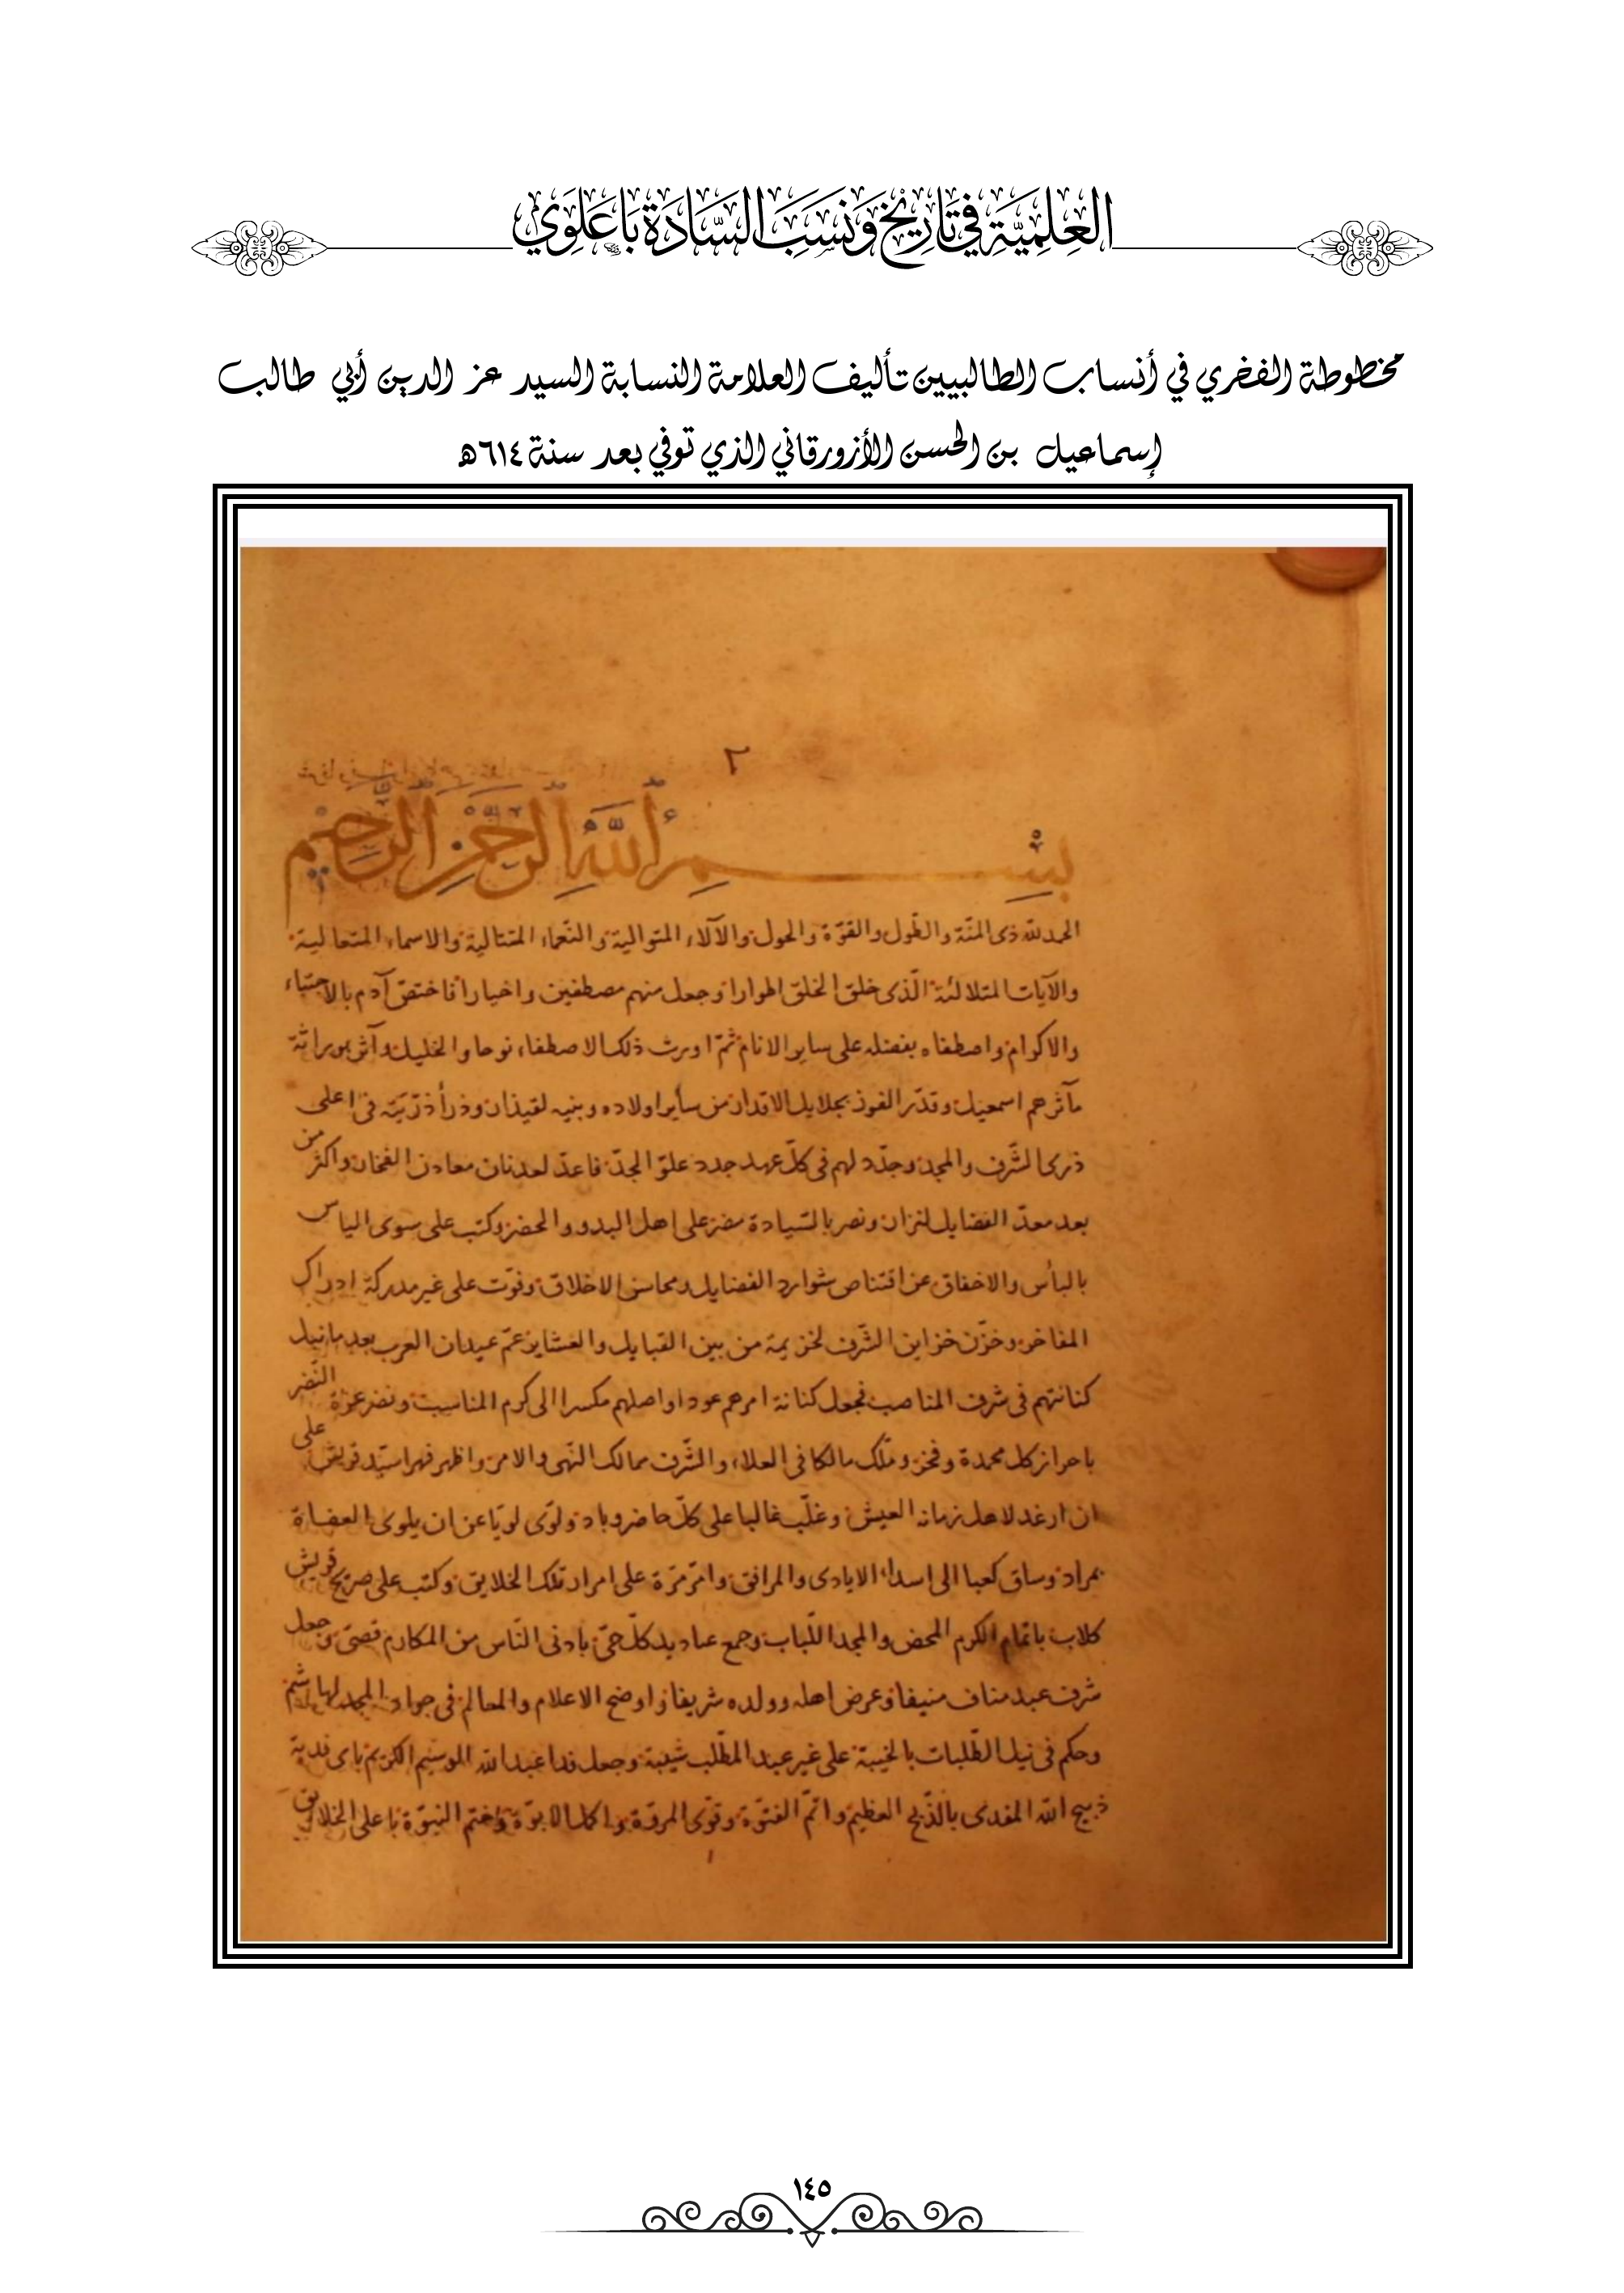 العِلْمِيَّةِ فِي تَارِيْخِ وَنَسَبِ السَّادَةِ بَاعَلَوِي
مخطوطة الفخري في أنساب الطالبيين تأليف العلامة النسابة السيد عز الدين أبي طالب
إسماعيل بن الحسن الأزورقاني الذي توفي بعد سنة ٦١٤هـ
٢
بسم الله الرحمن الرحيم
الحمد لله ذى المنّة والطّول والقوّة والحول والآلاء المتوالية والنّعماء المتتالية والاسماء المتعالية
والآيات المتلالئة الّذى خلق الخلق اطوارا وجعل منهم مصطفين واخيارا فاختصّ آدم بالاجتباء
والاكرام واصطفاه بفضله على ساير الانام ثمّ اورث ذلك الاصطفاء نوحا والخليل وآثر بوراثة
مآثرهم اسمعيل وقدّر الفوز بجلايل الاقدار من ساير اولاده وبنيه لقيذار وذرأ ذرّيّته فى اعلى
ذرى الشّرف والمجد وجدّد لهم فى كلّ عهد جدد علوّ الجدّ فاعدّ لعدنان معادن الفخار واكثر من
بعد معدّ الفضايل لنزار ونصر بالسّيادة مضر على اهل البدو والحضر وكتب على سوى الياس
بالياس والاخفاق عن اقتناص شوارد الفضايل ومحاسن الاخلاق وفوّت على غير مدركة ادراك
المفاخر وخزّن خزاين الشّرف لخزيمة من بين القبايل والعشاير عمّ عيدان العرب بعد ما نيل
كنانتهم فى شرف المناصب فجعل كنانة امرهم عودا واصلهم مكسرا الى كرم المناسب ونضر عزة النّضر
باحراز كل محمدة وفخر وملّك مالكا فى العلاء والشّرف ممالك النّهى والامر واظهر فهرا سيّد قريش على
ان ارغد لاهل زمانه العيش وغلّب غالبا على كلّ حاضر وباد ولوّى لويّا عن ان يلوى العفاة
بمراد وساق كعبا الى اسداء الايادى والمرافق وامرّ مرّة على امرار تلك الخلايق وكتب على صريح قريش
كلاب باتمام الكرم المحض والمجد اللّباب وجمع عباديد كلّ حىّ بادنى النّاس من المكارم قصىّ وجعل
شرف عبد مناف منيفا وعرض اهله وولده شريفا واوضح الاعلام والمعالم فى جواد المجد لهاشم
وحكم فى نيل الطّلبات بالخيبة على غير عبد المطّلب شيبة وجعل فدا عبد الله الوسيم الكريم باى فدية
ذبيح الله المفدى بالذّبح العظيم واتمّ الفتوّة وقوّى المروّة واكمل الابوّة وختم النبوّة باعلى الخلايق
١٤٥